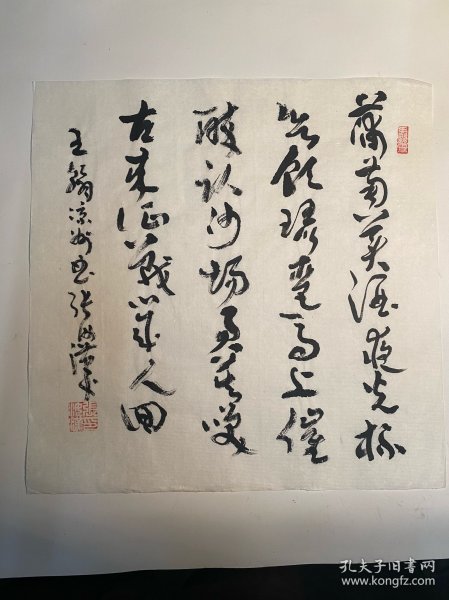 葡萄美酒夜光杯
欲飲琵琶馬上催
醉臥沙場君莫笑
古来征戰幾人回
王翰凉州
孔夫子旧书网
www.kongfz.com